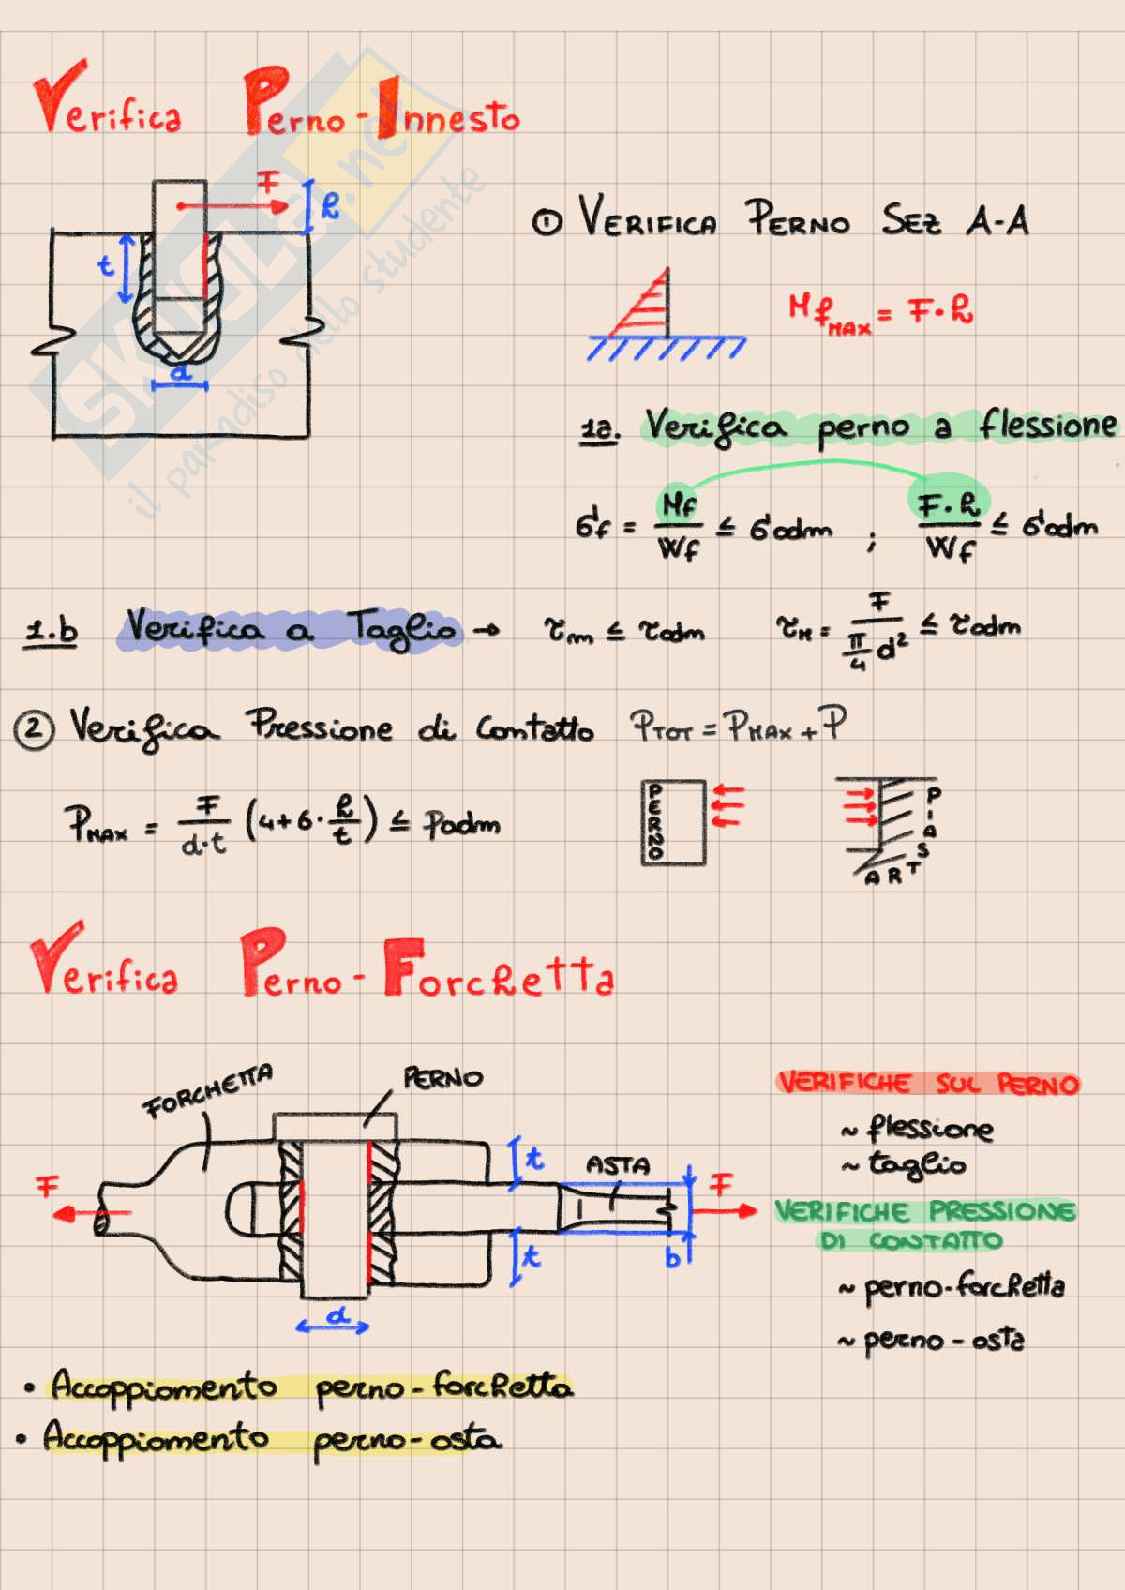 Verifica Perno-Innesto
F
h
t
d
① VERIFICA PERNO SEZ A-A
Mf_MAX = F·h
1a. Verifica perno a flessione
σf = Mf/Wf ≤ σadm ; F·h/Wf ≤ σadm
1.b Verifica a Taglio → τm ≤ τadm τM = F/(π/4 d²) ≤ τadm
② Verifica Pressione di Contatto P_TOT = P_MAX + P
P_MAX = F/(d·t) (4+6·h/t) ≤ padm
PERNO
PIASTRA
Verifica Perno-Forchetta
FORCHETTA
PERNO
F
t
ASTA
F
t
b
d
VERIFICHE SUL PERNO
~ flessione
~ taglio
VERIFICHE PRESSIONE
DI CONTATTO
~ perno-forchetta
~ perno-asta
• Accoppiamento perno-forchetta
• Accoppiamento perno-asta
SKUOLA.net
il paradiso dello studente